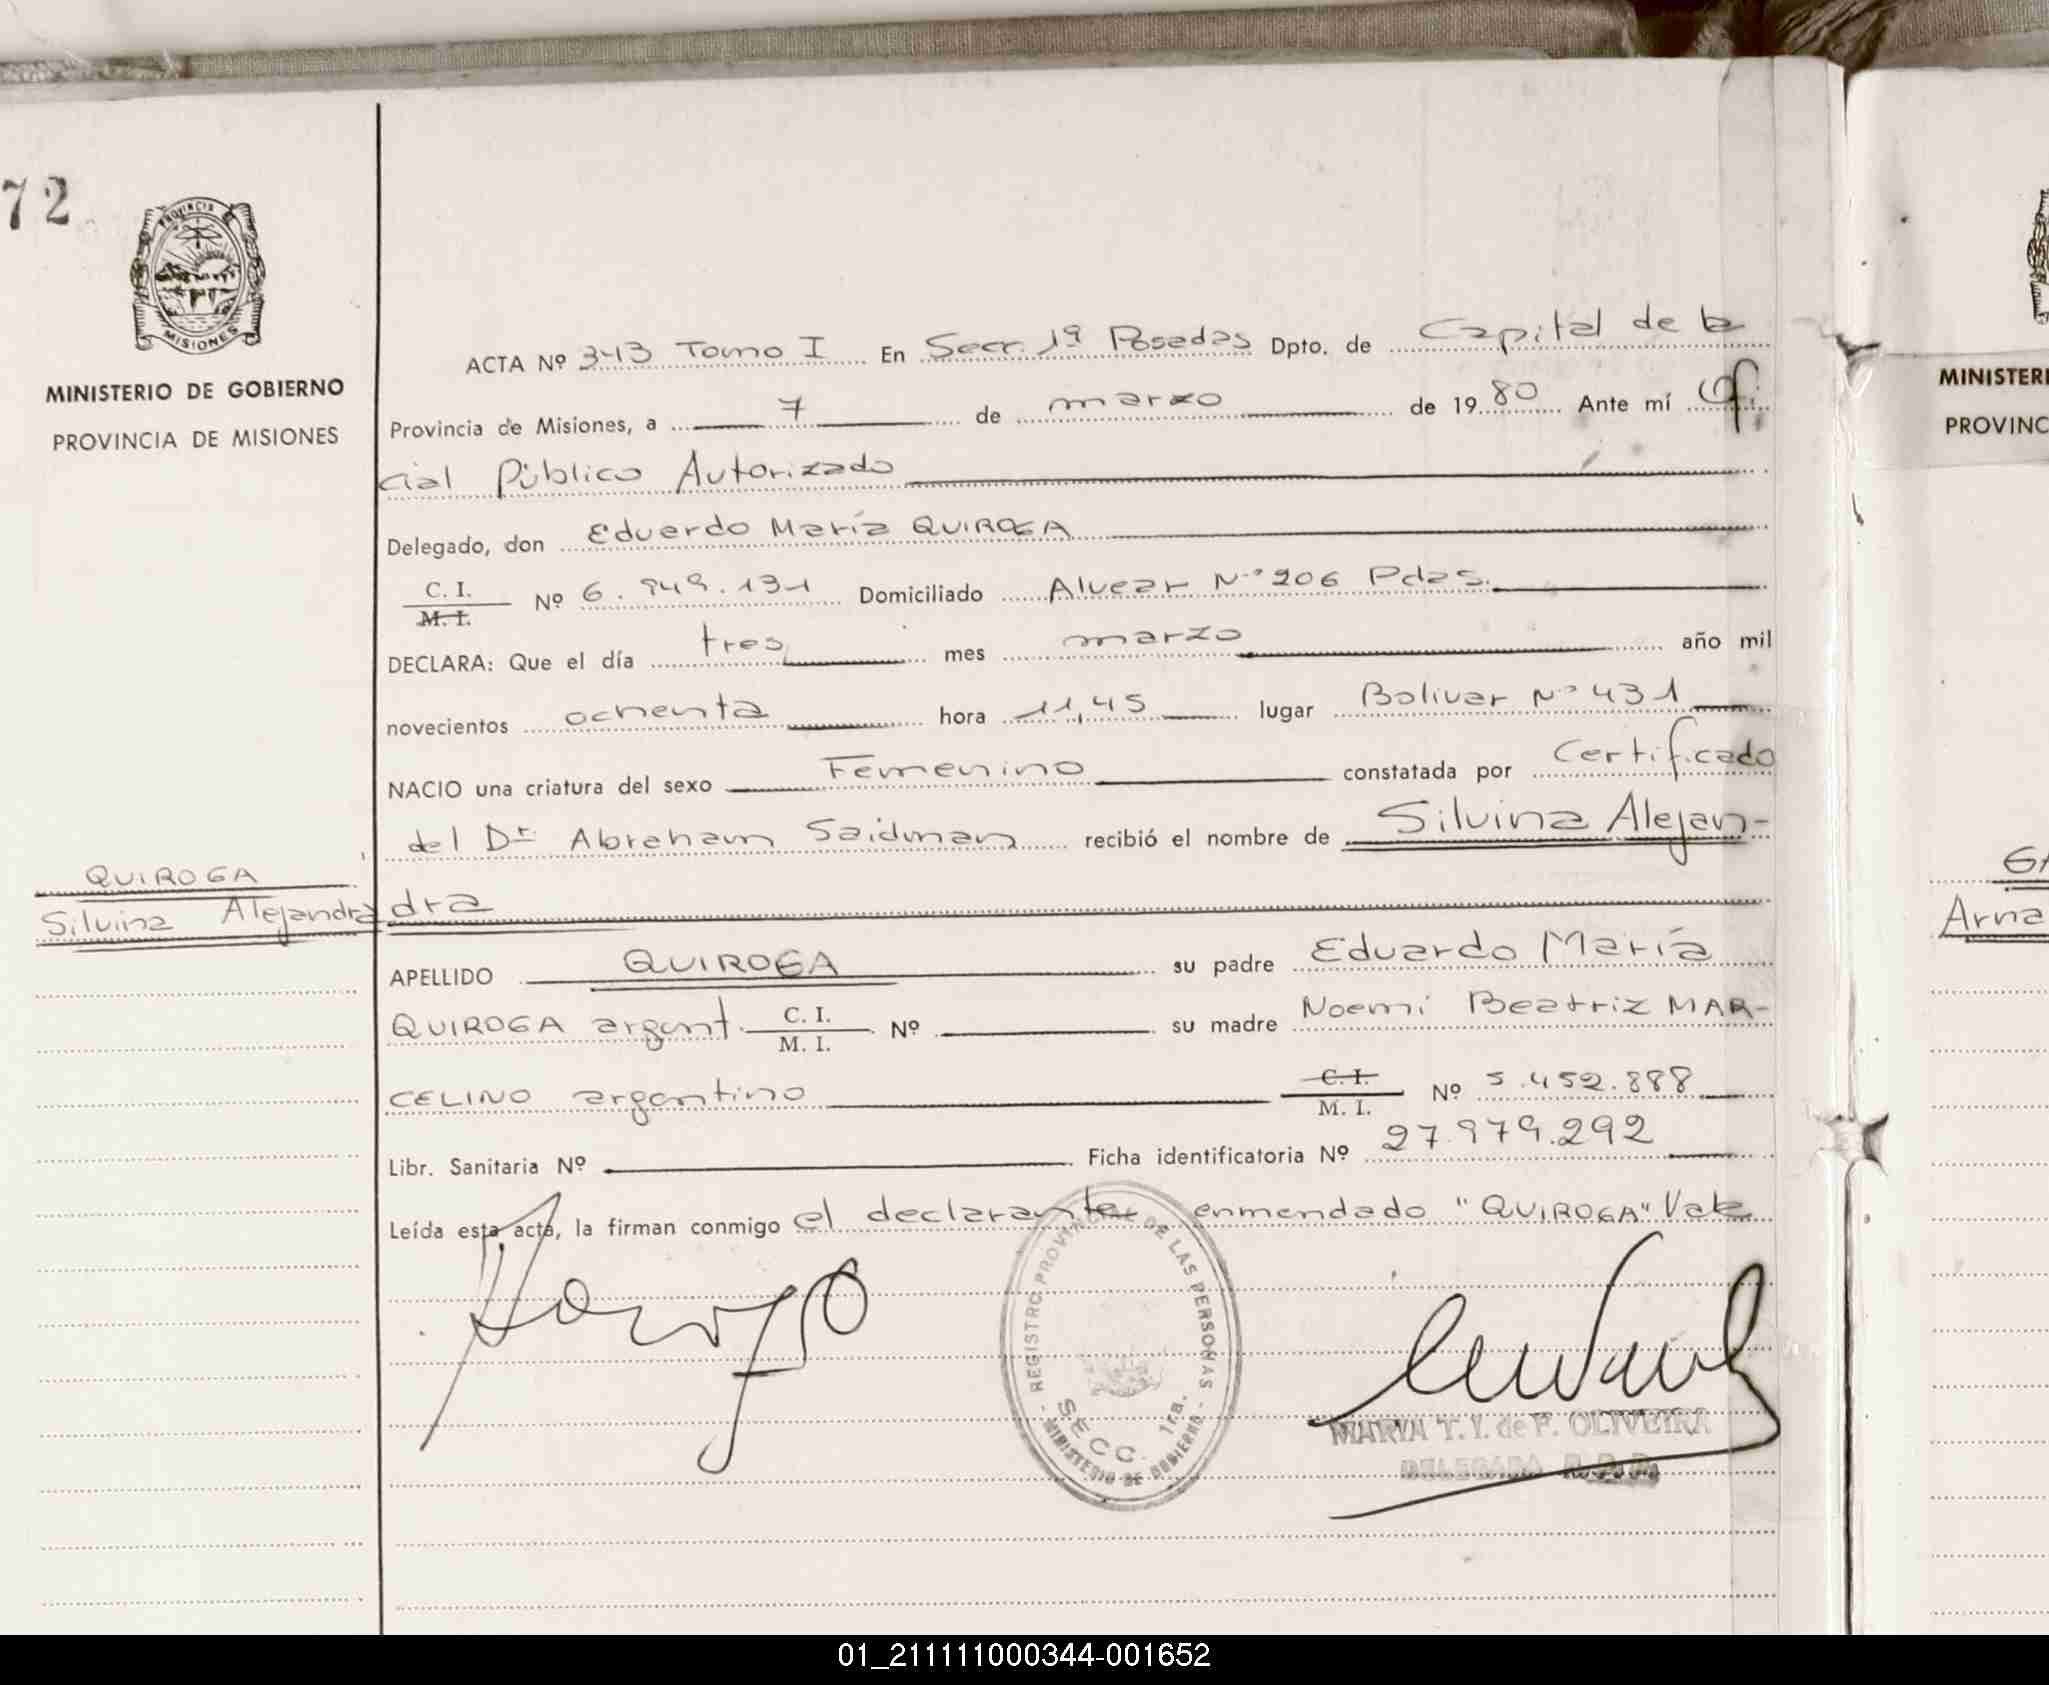 72
PROVINCIA DE
MISIONES
MINISTERIO DE GOBIERNO
PROVINCIA DE MISIONES
ACTA Nº 343 Tomo I En Secc. 1ª Posadas Dpto. de Capital de la
Provincia de Misiones, a 7 de marzo de 1980 Ante mí Ofi
cial Público Autorizado
Delegado, don Eduardo María QUIROGA
C. I.
M. I. Nº 6.949.131 Domiciliado Alvear Nº 206 Pdas.
DECLARA: Que el día tres mes marzo año mil
novecientos ochenta hora 11,45 lugar Bolivar Nº 431
NACIO una criatura del sexo Femenino constatada por Certificado
del Dr Abraham Saidman recibió el nombre de Silvina Alejan-
dra
QUIROGA
Silvina Alejandra
APELLIDO QUIROGA su padre Eduardo María
QUIROGA argent. C. I.
M. I. Nº su madre Noemí Beatriz MAR-
CELINO argentino C. I.
M. I. Nº 5.452.888
Libr. Sanitaria Nº Ficha identificatoria Nº 27.979.292
Leída esta acta, la firman conmigo el declarante enmendado "QUIROGA" Vale
REGISTRO PROVINCIAL DE LAS PERSONAS
SECC. 1ra.
- MINISTERIO DE GOBIERNO -
MARIA T. I. de F. OLIVEIRA
DELEGADA R.P.P.
MINISTERI
PROVINC
GA
Arna
01_211111000344-001652